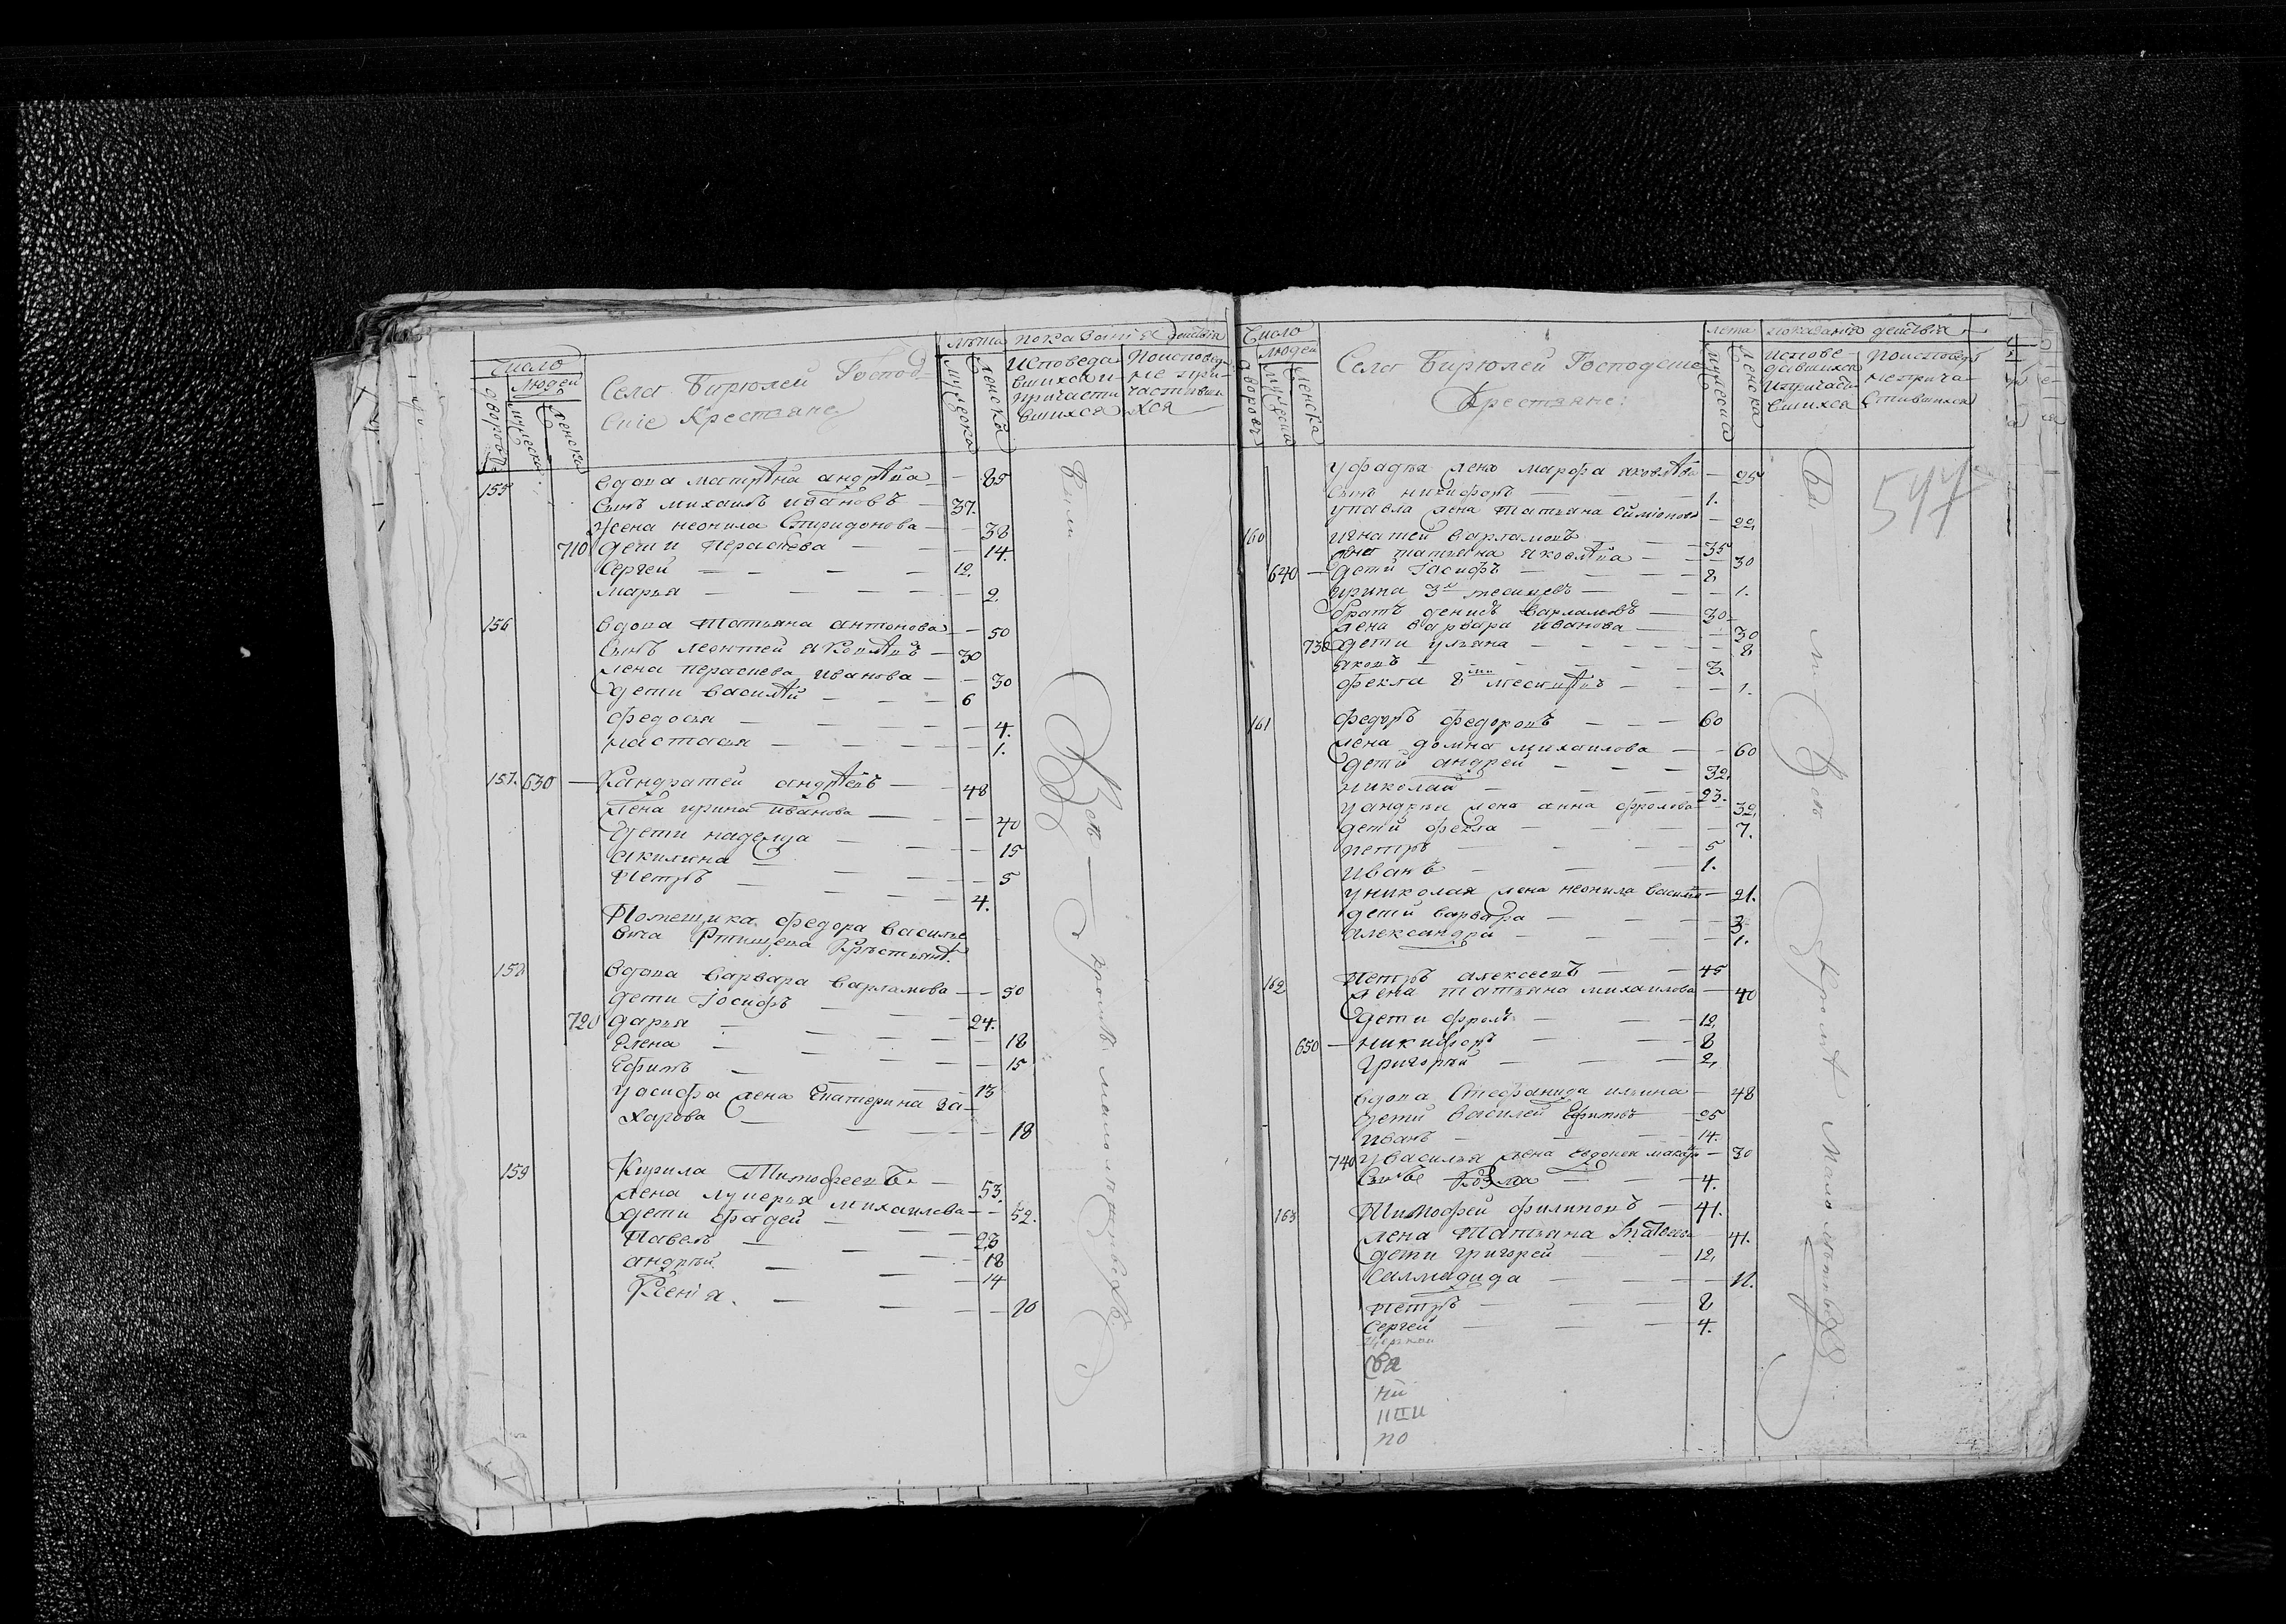 Число
Людей
дворовъ
мужеска
женска
Села Бирюлей Господ
скіе Крестьяне
лѣта
мужеска
женска
показаніе действа
Исповеда
вшихся и
причасти
вшихся
Поисповед
не при
частивши
хся
155 вдова матрѣна андрѣва — 85
Сынъ михаилъ ивановъ — 37.
Жена неонила Спиридонова — 38
710 дети Праскева — 14.
Сергей — 12.
Марья — 2
156 вдова Татьяна антонова — 50
Сынъ леонтей яковлѣвъ — 30
жена праскева иванова — 30
дети василѣй — 6
федосья — 4.
настасья — 1.
157. 630 — Кандратей андрѣевъ — 48
жена ирина иванова — 40
дети надежда — 15
акилина — 5
Петръ — 4.
Помещика федора василье
вича Ртищева Крестьянѣ
158 вдова варвара варламова — 50
дети Іосифъ — 24.
720 дарья — 18
Елена — 15
Ефимъ — 13
уосифа жена Екатерина за
харова — 18
159 Кирила Тимофеевъ — 53.
жена лукерья михаилова — 52.
дети фадей — 23
Павелъ — 18
андрѣй — 14
Ксенія — 10
Были
Всѣ
Кромѣ
малолѣтныхъ
Число
людей
дворовъ
мужеска
женска
Села Бирюлей Господские
Крестьяне:
лета
мужеска
женска
показаніе действа
испове
давшихся
ипричасти
вшихся
Поисповеди
неприча
стившихся
547
уфадея жена марфа яковлѣва — 25
Сынъ никифоръ — 1.
упавла жена татьяна Симіонова — 22
160 игнатей варламовъ — 35
жена татьяна яковлѣва — 30
640 — дети Іосифъ — 8
ирина 3х месицевъ — 1.
братъ денисъ варламовъ — 30
жена варвара иванова — 30
730 дети ульяна — 8
яковъ — 3.
фекла 8ми — 1.
161 федоръ федоровъ — 60
жена домна михаилова — 60
дети андрей — 32
николай — 23.
уандрѣя жена анна фролова — 32
дети фекла — 7.
петръ — 5
иванъ — 1.
униколая жена неонила василѣва — 21.
дети варвара — 3
александра — 1.
162 Петръ алексеевъ — 45
жена татьяна михаилова — 40
дети фролъ — 12
650 — никифоръ — 8
Григорѣй — 2
вдова Стефанида ильина — 48
дети василей Ефимовъ — 25
иванъ — 14.
740 увасилья жена евдокея — 30
Сынъ Козма — 4.
163 Тимофей филиповъ — 41.
жена татьяна — 41.
дети григорей — 12
Салмадида — 11.
петръ — 8
Сергей — 4.
Бы
ли
Всѣ
Кромѣ
Малолѣтныхъ